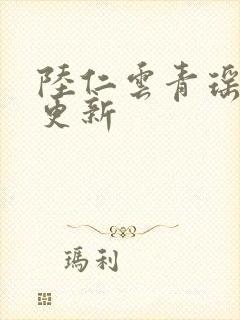 陸仁雲青瑤
更新
瑪利